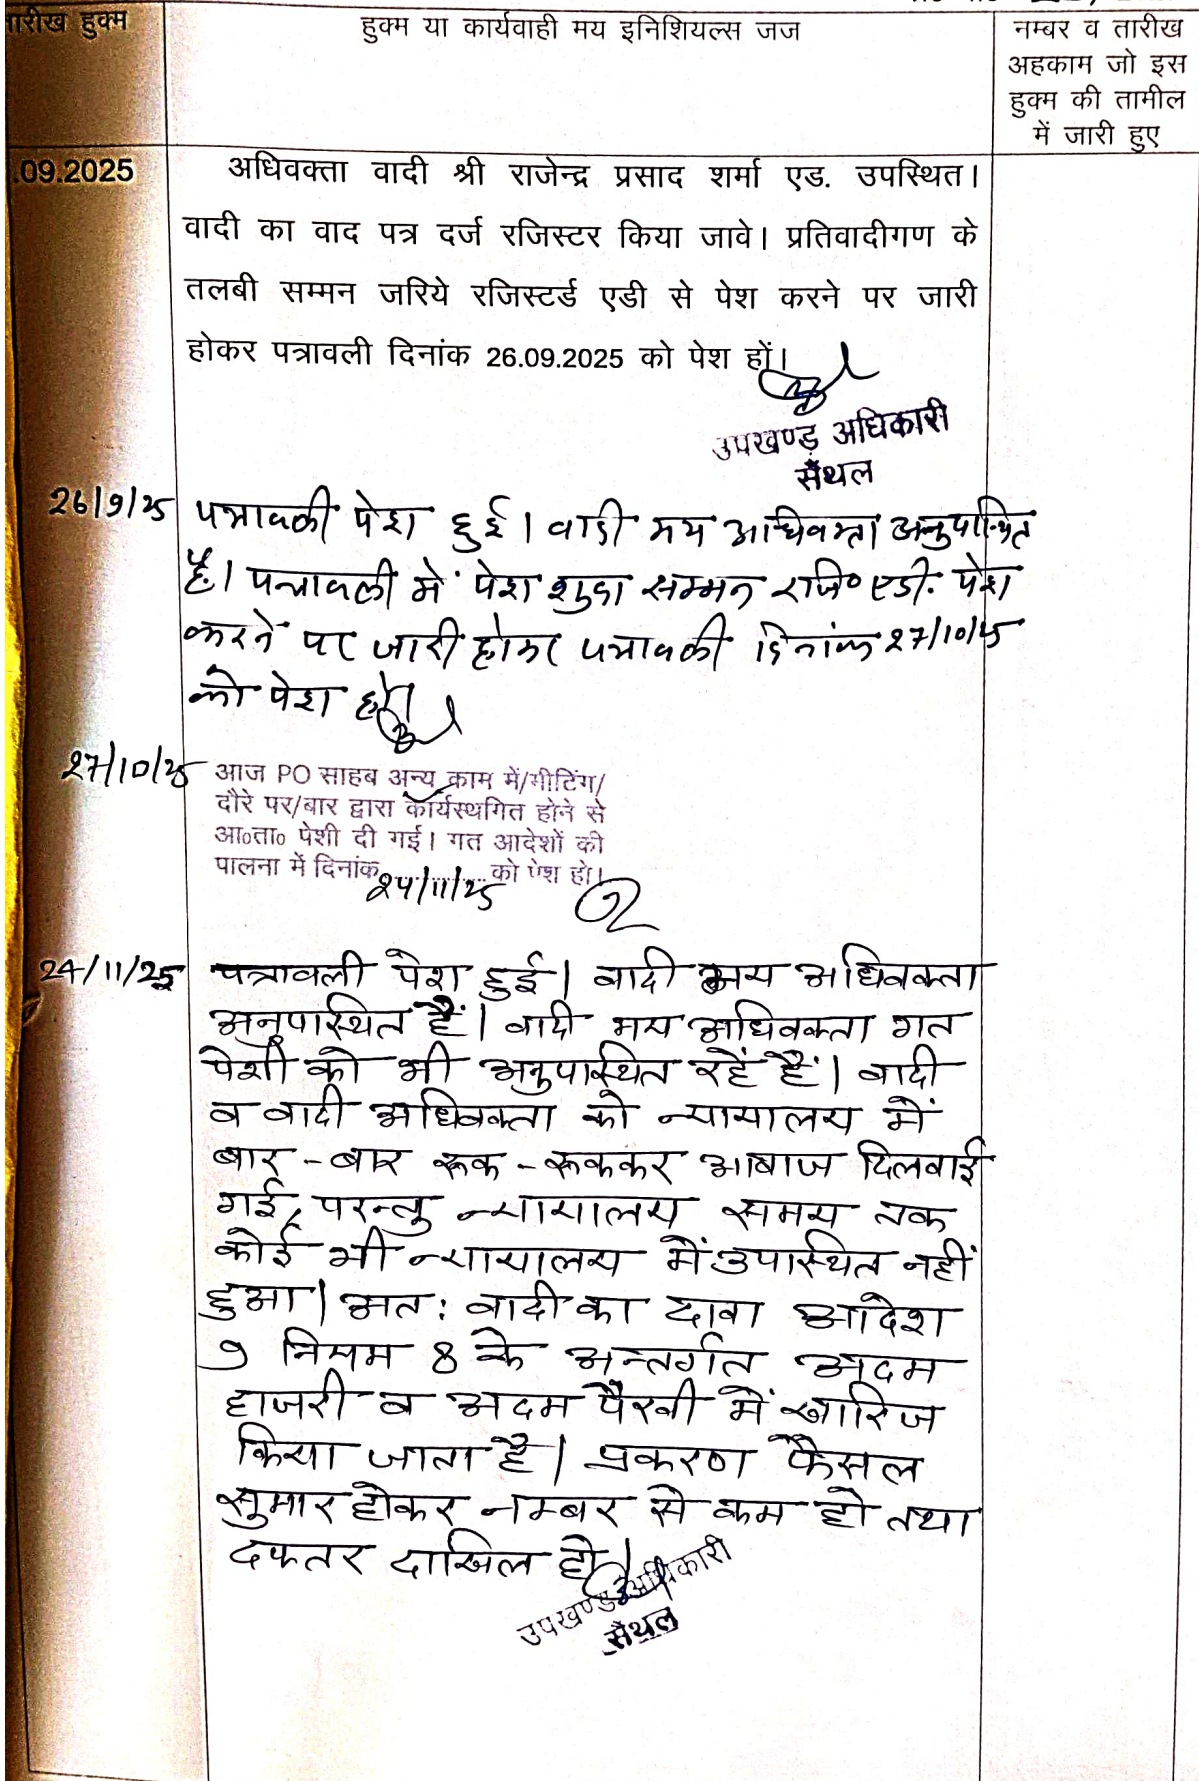 तारीख हुक्म
हुक्म या कार्यवाही मय इनिशियल्स जज
नम्बर व तारीख
अहकाम जो इस
हुक्म की तामील
में जारी हुए
.09.2025
अधिवक्ता वादी श्री राजेन्द्र प्रसाद शर्मा एड. उपस्थित।
वादी का वाद पत्र दर्ज रजिस्टर किया जावे। प्रतिवादीगण के
तलबी सम्मन जरिये रजिस्टर्ड एडी से पेश करने पर जारी
होकर पत्रावली दिनांक 26.09.2025 को पेश हों।
उपखण्ड अधिकारी
सैंथल
26/9/25 पत्रावली पेश हुई। वादी मय अधिवक्ता अनुपस्थित
है। पत्रावली में पेश शुदा सम्मन रजि० एडी. पेश
करने पर जारी होकर पत्रावली दिनांक 27/10/25
को पेश हो।
27/10/25
आज PO साहब अन्य काम में/मीटिंग/
दौरे पर/बार द्वारा कार्यस्थगित होने से
आ०ता० पेशी दी गई। गत आदेशों की
पालना में दिनांक 24/11/25 को पेश हो।
24/11/25 पत्रावली पेश हुई। वादी मय अधिवक्ता
अनुपस्थित हैं। वादी मय अधिवक्ता गत
पेशी को भी अनुपस्थित रहें हैं। वादी
व वादी अधिवक्ता को न्यायालय में
बार-बार रूक-रूककर आवाज दिलवाई
गई, परन्तु न्यायालय समय तक
कोई भी न्यायालय में उपस्थित नहीं
हुआ। अत: वादी का दावा आदेश
9 नियम 8 के अन्तर्गत अदम
हाजरी व अदम पैरवी में खारिज
किया जाता है। प्रकरण फैसल
सुमार होकर नम्बर से कम हो तथा
दफतर दाखिल हो।
उपखण्ड अधिकारी
सैंथल